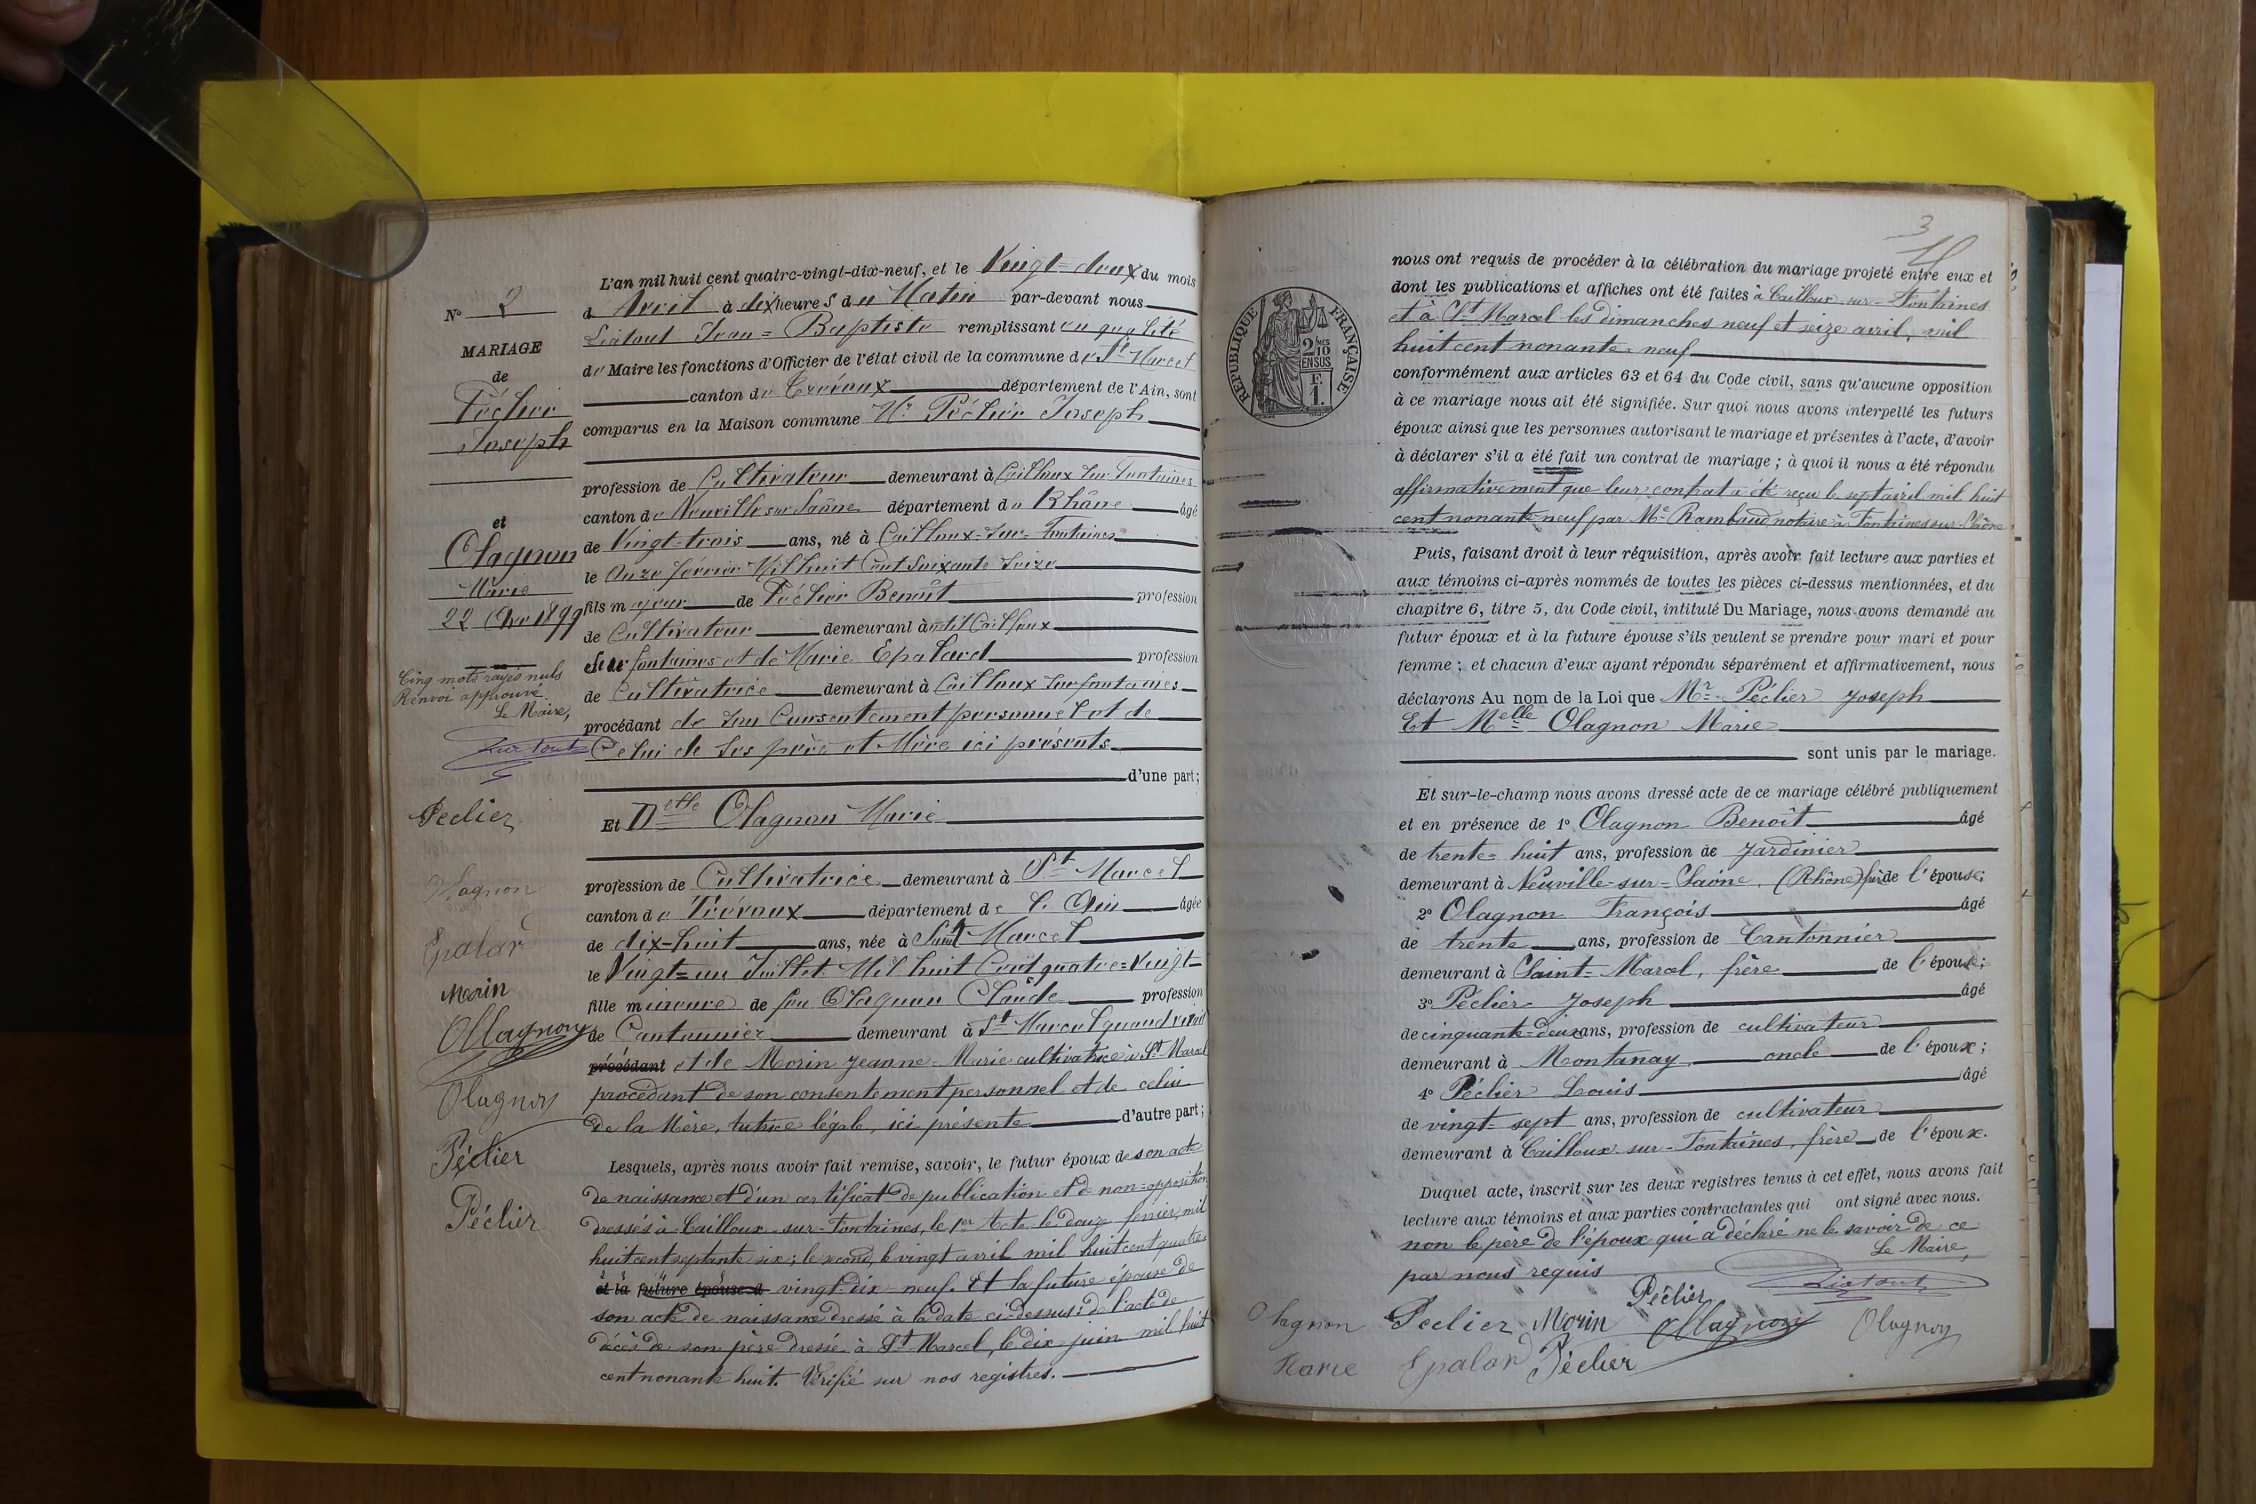 N° 2
MARIAGE
de
Péclier
Joseph
et
Olagnon
Marie
22 Avr 1899
Cinq mots rayés nuls
Renvoi approuvé.
Le Maire,
Liatout
Peclier
Olagnon
Epalar
Morin
Ollagnon
Olagnon
Péclier
Péclier
L'an mil huit cent quatre-vingt-dix-neuf, et le Vingt=deux du mois
d Avril à dix heures du Matin par-devant nous
Liatout Jean=Baptiste remplissant en qualité
de Maire les fonctions d'Officier de l'état civil de la commune de St Marcel
canton de Trévoux département de l'Ain, sont
comparus en la Maison commune Mr Péclier Joseph
profession de Cultivateur demeurant à Cailloux sur Fontaines
canton de Neuville sur Saône département du Rhône âgé
de Vingt-trois ans, né à Cailloux-sur-Fontaines
le Onze février Mil huit Cent Soixante Seize
fils majeur de Péclier Benoît profession
de Cultivateur demeurant à Cailloux
sur fontaines et de Marie Epalard profession
de Cultivatrice demeurant à Cailloux sur fontaines
procédant de son Consentement personnel et de
Celui de ses père et Mère ici présents
d'une part;
Et Delle Olagnon Marie
profession de Cultivatrice demeurant à St Marcel
canton de Trévoux département de l'Ain âgée
de dix-huit ans, née à Saint-Marcel
le Vingt=un Juillet Mil huit Cent quatre=Vingt
fille mineure de feu Olagnon Claude profession
de Cantonnier demeurant à St Marcel quand vivait
procédant et de Morin Jeanne-Marie cultivatrice à St Marcel
procédant de son consentement personnel et de celui
de la Mère, tutrice légale, ici présente d'autre part;
Lesquels, après nous avoir fait remise, savoir, le futur époux de son acte
de naissance et d'un certificat de publication et de non=opposition
dressés à Cailloux-sur-Fontaines, le 1er Acte le douze février mil
huit cent septante six; le second, le vingt avril mil huit cent quatre
et la future épouse d vingt-dix-neuf. Et la future épouse de
son acte de naissance dressé à la date ci-dessus: de l'acte de
décès de son père dressé à St Marcel, le dix juin mil huit
cent nonante huit. Vérifié sur nos registres.
3
RÉPUBLIQUE FRANÇAISE
2/10 EN SUS
F. 1.
nous ont requis de procéder à la célébration du mariage projeté entre eux et
dont les publications et affiches ont été faites à Cailloux-sur-Fontaines
et à St Marcel les dimanches neuf et seize avril, mil
huit cent nonante-neuf
conformément aux articles 63 et 64 du Code civil, sans qu'aucune opposition
à ce mariage nous ait été signifiée. Sur quoi nous avons interpellé les futurs
époux ainsi que les personnes autorisant le mariage et présentes à l'acte, d'avoir
à déclarer s'il a été fait un contrat de mariage; à quoi il nous a été répondu
affirmativement que leur contrat a été reçu le sept avril mil huit
cent nonante-neuf par Me Rambaud notaire à Fontaines sur-Saône
Puis, faisant droit à leur réquisition, après avoir fait lecture aux parties et
aux témoins ci-après nommés de toutes les pièces ci-dessus mentionnées, et du
chapitre 6, titre 5, du Code civil, intitulé Du Mariage, nous avons demandé au
futur époux et à la future épouse s'ils veulent se prendre pour mari et pour
femme; et chacun d'eux ayant répondu séparément et affirmativement, nous
déclarons Au nom de la Loi que Mr Péclier Joseph
Et Melle Olagnon Marie
sont unis par le mariage.
Et sur-le-champ nous avons dressé acte de ce mariage célébré publiquement
et en présence de 1° Olagnon Benoît âgé
de trente=huit ans, profession de Jardinier
demeurant à Neuville-sur=Saône, (Rhône) frère de l'épouse;
2° Olagnon François âgé
de trente ans, profession de Cantonnier
demeurant à Saint=Marcel, frère de l'épouse;
3° Péclier Joseph âgé
de cinquante=deux ans, profession de cultivateur
demeurant à Montanay oncle de l'époux;
4° Péclier Louis âgé
de vingt=sept ans, profession de cultivateur
demeurant à Cailloux-sur-Fontaines, frère de l'époux.
Duquel acte, inscrit sur les deux registres tenus à cet effet, nous avons fait
lecture aux témoins et aux parties contractantes qui ont signé avec nous.
non le père de l'époux qui a déclaré ne le savoir de ce
par nous requis
Le Maire,
Liatout
Péclier
Olagnon Peclier Morin Ollagnon Olagnon
Marie Epalard Péclier